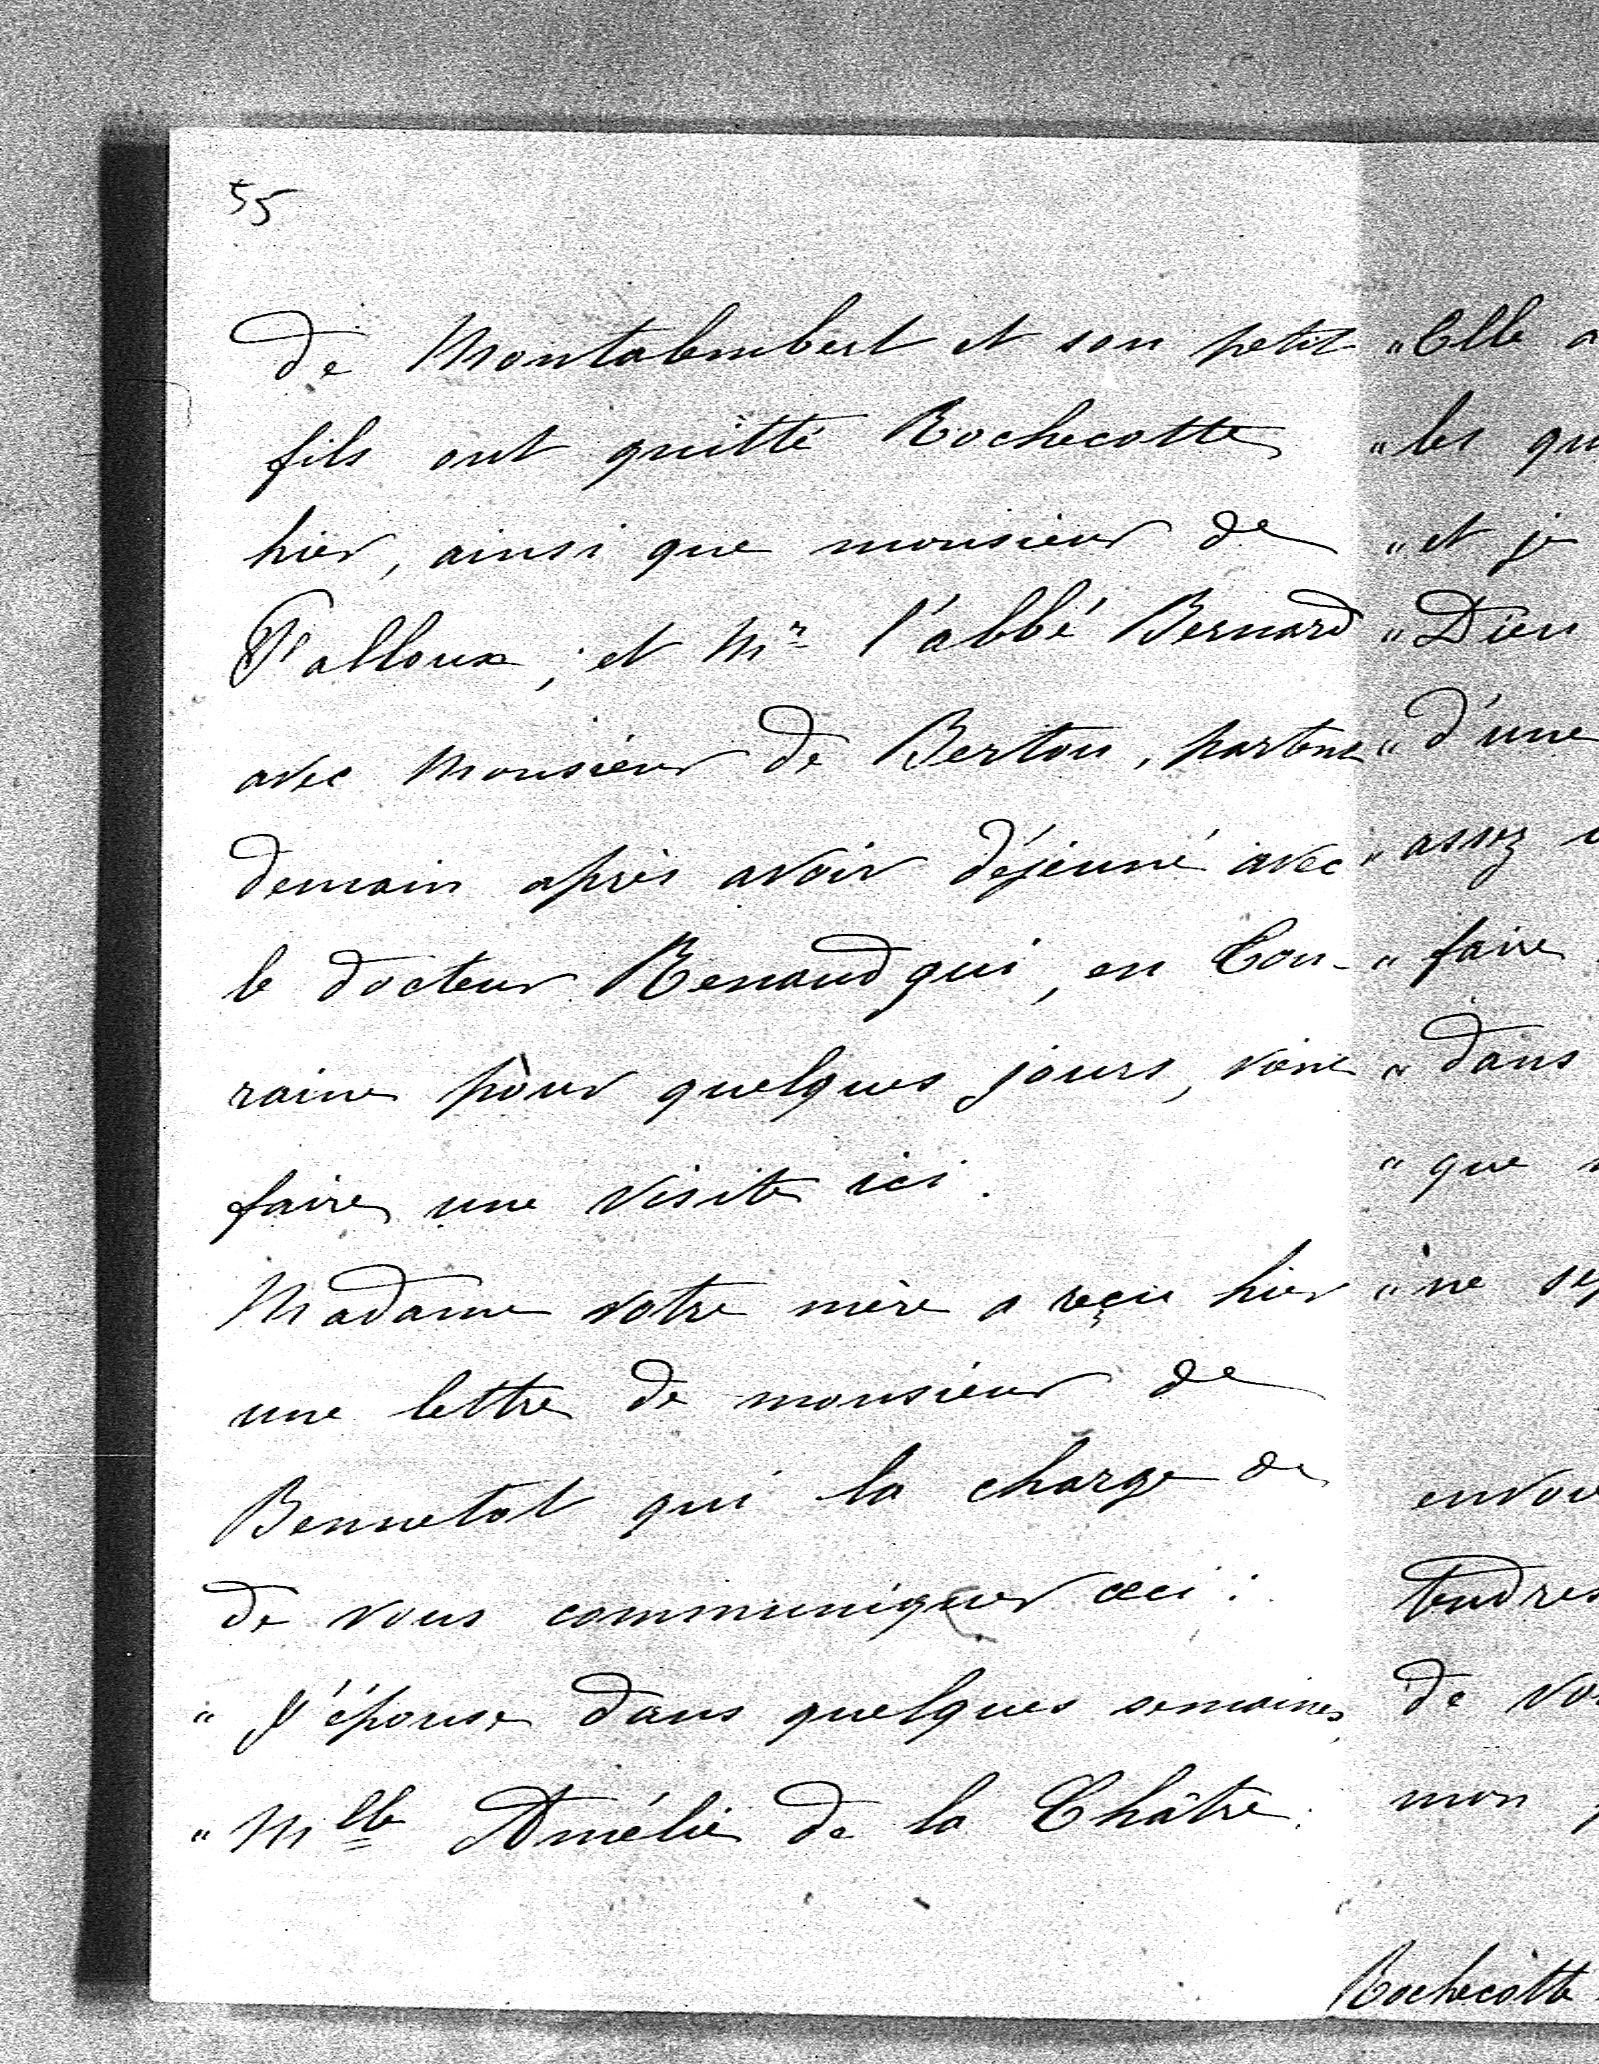 55
de Montalembert et son petit
fils ont quitté Rochecotte
hier, ainsi que monsieur de
Falloux; et Mr l'abbé Bernard
avec Monsieur de Bertou, partent
demain après avoir déjeuné avec
le docteur Renaud qui, en Tou-
raine pour quelques jours, vient
faire une visite ici.
Madame votre mère a reçu hier
une lettre de monsieur de
Bennetot qui la charge de
de vous communiquer ceci:
" J'épouse dans quelques semaines,
" Mlle Amélie de la Châtre.
" Elle a
" les qu
" et je
" Dieu
" d'une
" assez
" faire
" dans
" que
" ne se
envoie
tendres
de vo
mon
Rochecotte